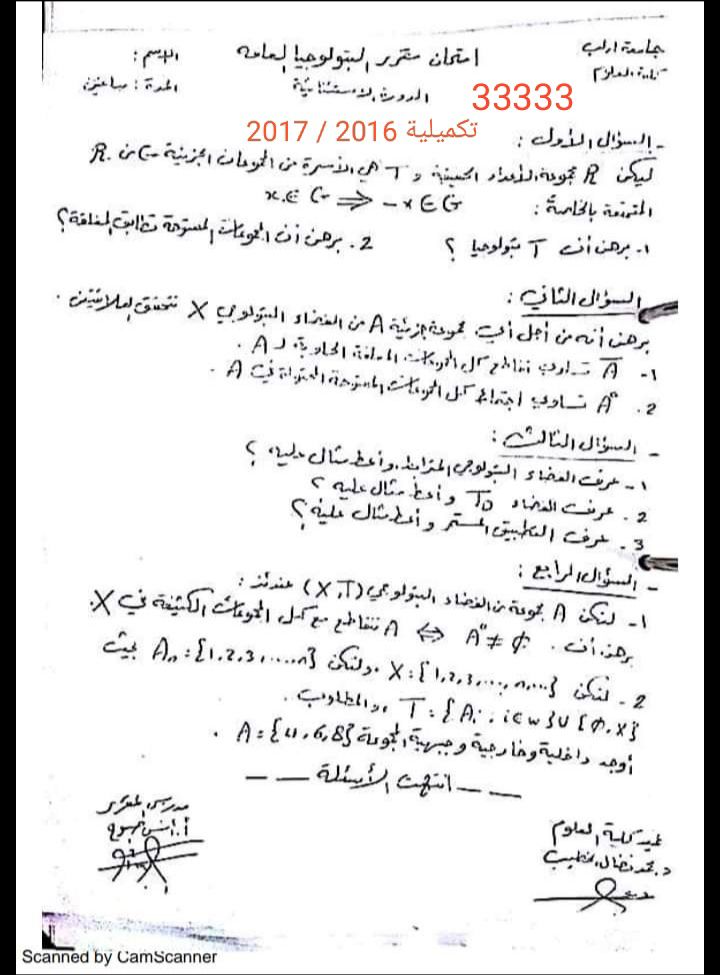 جامعة ادلب
كلية العلوم
امتحان مقرر التبولوجيا العامة
الدورة الاستثنائية
الاسم :
المدة : ساعتين
33333
تكميلية 2016 / 2017
- السؤال الأول :
ليكن R مجموعة الأعداد الحقيقية و T هي الأسرة من المجموعات الجزئية G من R.
المتمتعة بالخاصة : x ∈ G ⟹ -x ∈ G
1. برهن أن T تبولوجيا ؟ 2. برهن أن المجموعات المفتوحة تطابق المغلقة ؟
السؤال الثاني :
برهن أنه من أجل أي مجموعة جزئية A من الفضاء التبولوجي X تتحقق العلاقتين .
1- Ā تساوي تقاطع كل المجموعات المغلقة الحاوية لـ A .
2. A° تساوي اجتماع كل المجموعات المفتوحة المحتواة في A .
- السؤال الثالث :
1- عرف الفضاء التبولوجي المترابط وأعط مثال عليه ؟
2. عرف الفضاء T0 وأعط مثال عليه ؟
3. عرف التطبيق المستمر وأعط مثال عليه ؟
- السؤال الرابع :
1- لتكن A مجموعة من الفضاء التبولوجي (X,T) عندئذ :
برهن أن . A°≠φ ⟺ A تتقاطع مع كل المجموعات الكثيفة في X.
2. لتكن X:{1,2,3,...,n,...} ولتكن An:{1,2,3,....n} بحيث
T:{Ai ; i∈w}∪{φ,X} والمطلوب .
أوجد داخلية وخارجية وجبهية المجموعة A={4,6,8} .
— — انتهت الأسئلة — —
مدرس المقرر
عميد كلية العلوم
Scanned by CamScanner